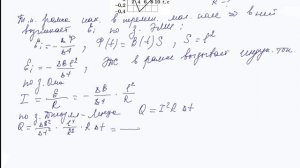 -0,2
Т.к. рамка нах. в перемен. маг. поле то в ней
возникает εi по з. ЭМИ:
εi = - ΔФ/Δt , Φ(t) = B(t)S , S = ℓ²
εi = - ΔBℓ²/Δt , ЭДС в рамке вызывает индук. ток.
по з. Ома
I = ε/R = - ΔB/Δt · ℓ²/R
по з. Джоуля-Ленца Q = I²RΔt
Q = ΔB²/Δt² · ℓ⁴/R² · RΔt =